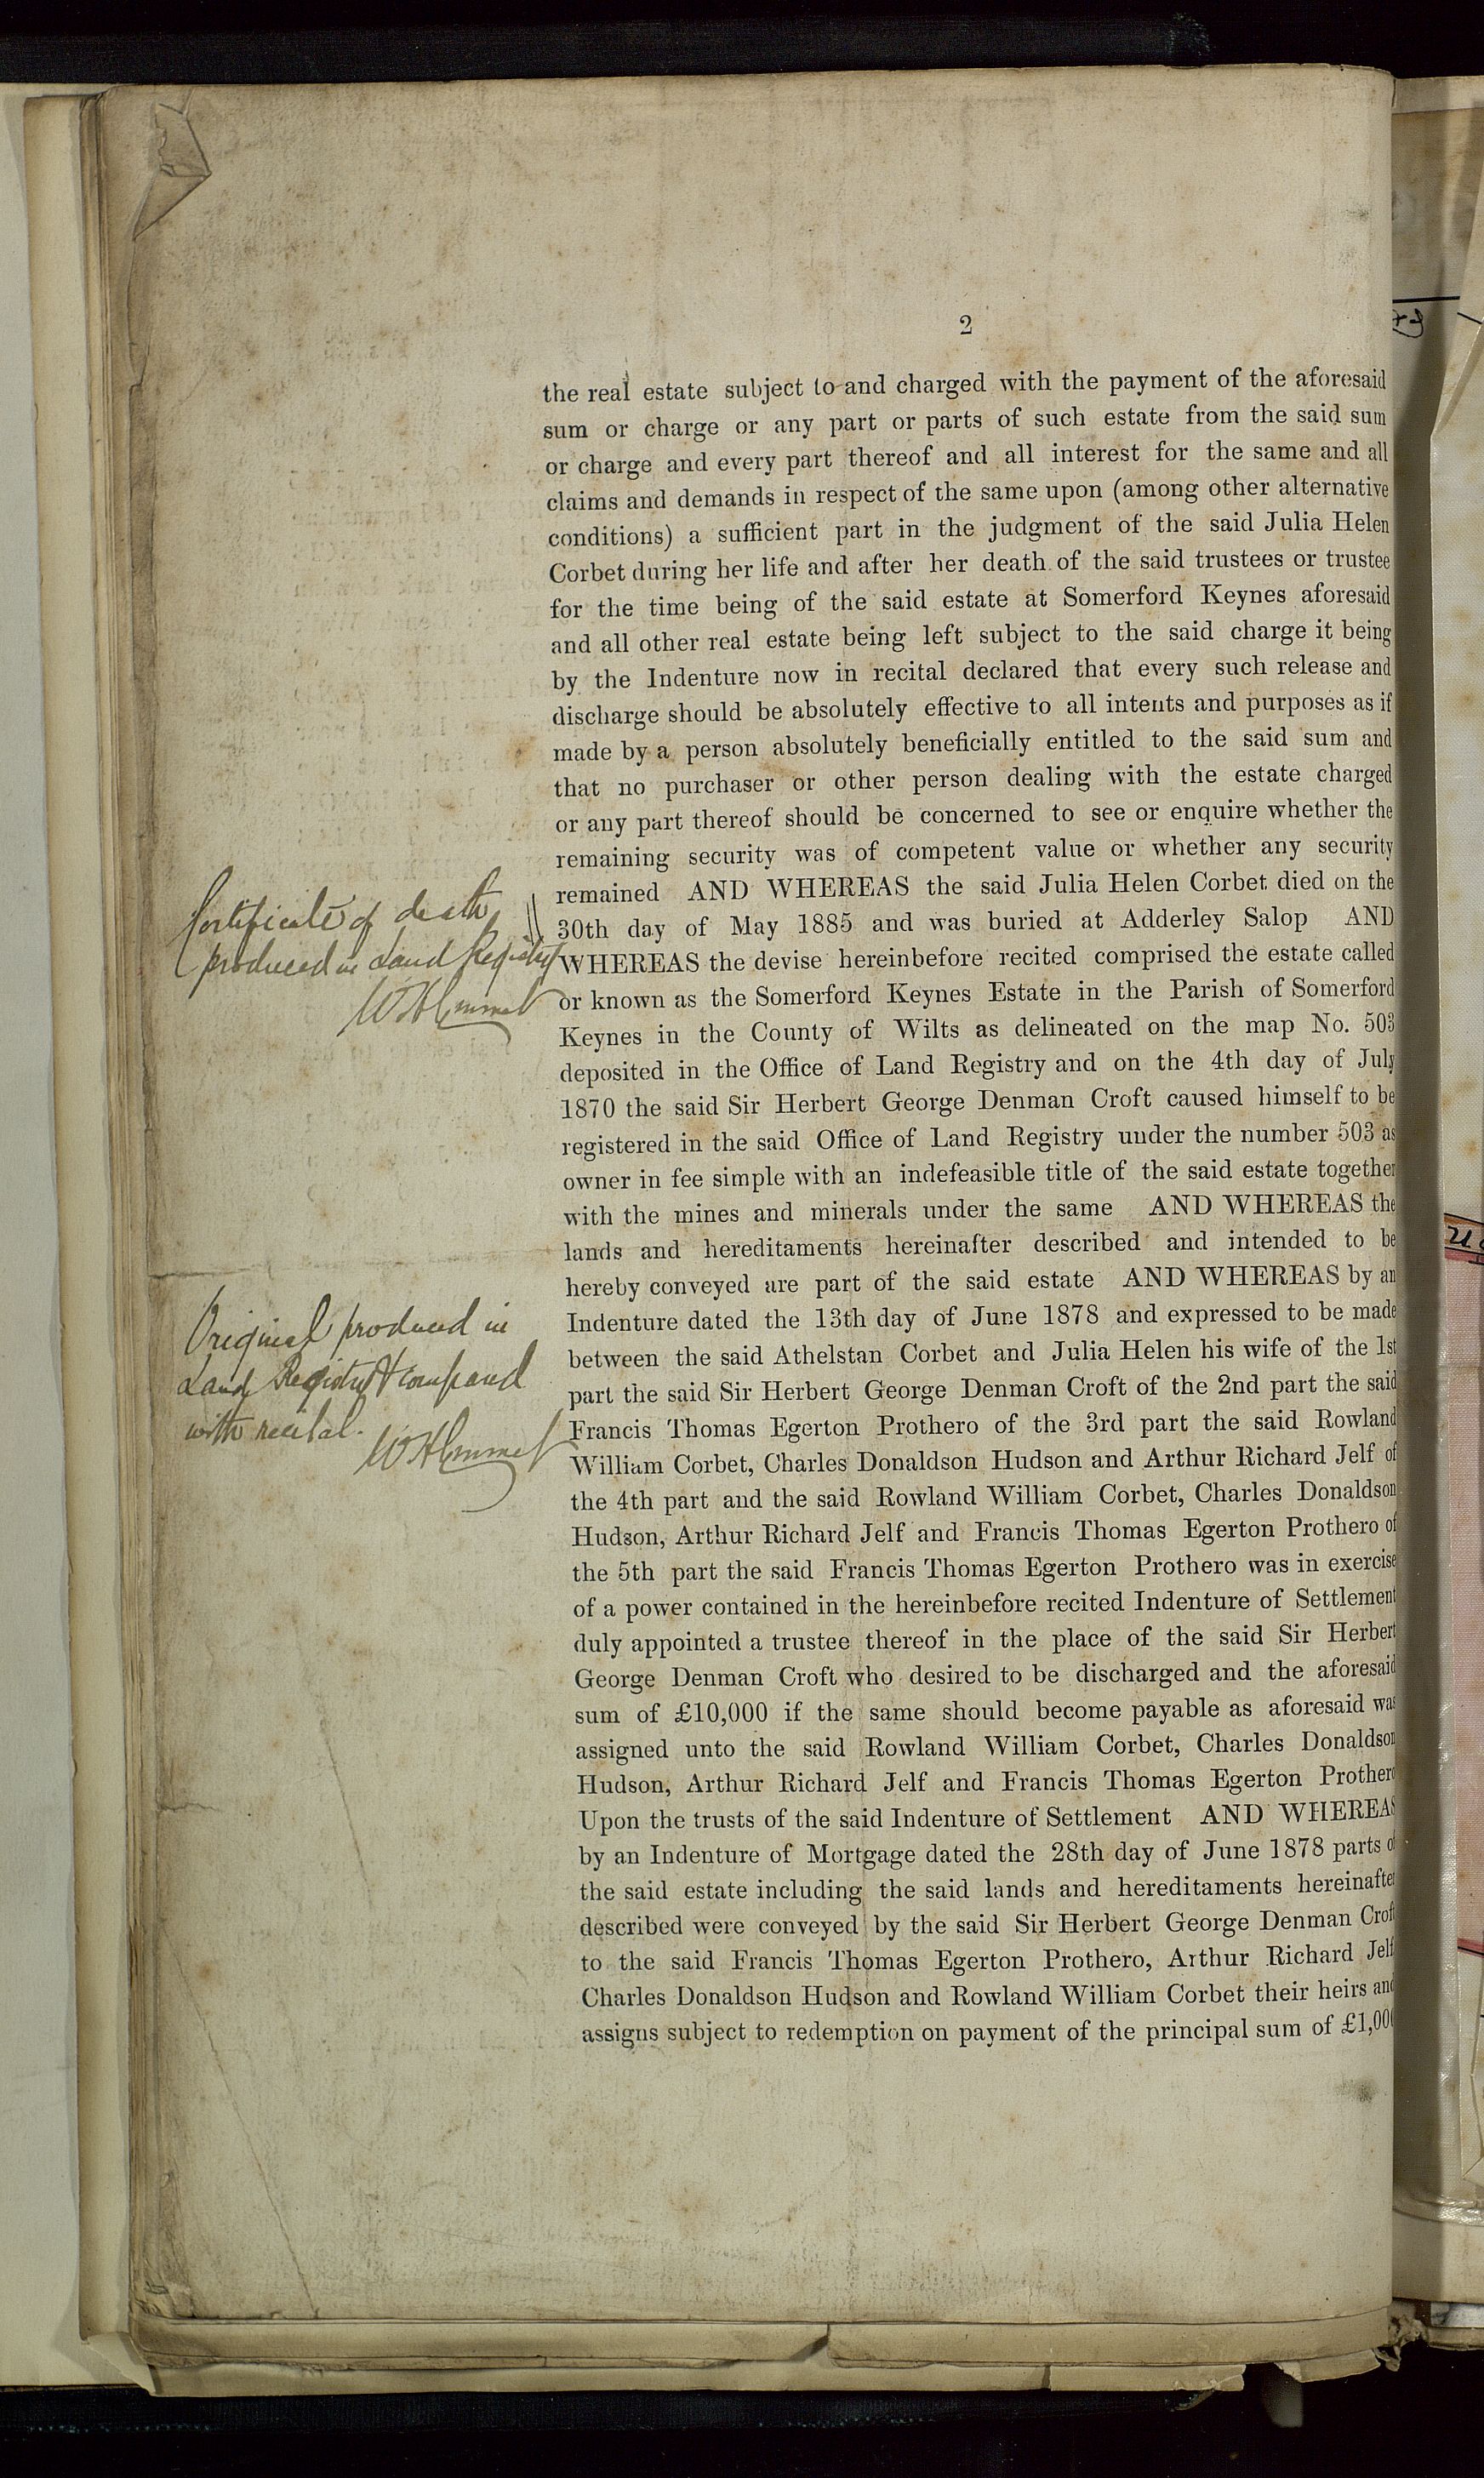 2
the real estate subject to and charged with the payment of the aforesaid
sum or charge or any part or parts of such estate from the said sum
or charge and every part thereof and all interest for the same and all
claims and demands in respect of the same upon (among other alternative
conditions) a sufficient part in the judgment of the said Julia Helen
Corbet during her life and after her death of the said trustees or trustee
for the time being of the said estate at Somerford Keynes aforesaid
and all other real estate being left subject to the said charge it being
by the Indenture now in recital declared that every such release and
discharge should be absolutely effective to all intents and purposes as if
made by a person absolutely beneficially entitled to the said sum and
that no purchaser or other person dealing with the estate charged
or any part thereof should be concerned to see or enquire whether the
remaining security was of competent value or whether any security
remained AND WHEREAS the said Julia Helen Corbet died on the
30th day of May 1885 and was buried at Adderley Salop AND
WHEREAS the devise hereinbefore recited comprised the estate called
or known as the Somerford Keynes Estate in the Parish of Somerford
Keynes in the County of Wilts as delineated on the map No. 503
deposited in the Office of Land Registry and on the 4th day of July
1870 the said Sir Herbert George Denman Croft caused himself to be
registered in the said Office of Land Registry under the number 503 as
owner in fee simple with an indefeasible title of the said estate together
with the mines and minerals under the same AND WHEREAS the
lands and hereditaments hereinafter described and intended to be
hereby conveyed are part of the said estate AND WHEREAS by an
Indenture dated the 13th day of June 1878 and expressed to be made
between the said Athelstan Corbet and Julia Helen his wife of the 1st
part the said Sir Herbert George Denman Croft of the 2nd part the said
Francis Thomas Egerton Prothero of the 3rd part the said Rowland
William Corbet, Charles Donaldson Hudson and Arthur Richard Jelf of
the 4th part and the said Rowland William Corbet, Charles Donaldson
Hudson, Arthur Richard Jelf and Francis Thomas Egerton Prothero of
the 5th part the said Francis Thomas Egerton Prothero was in exercise
of a power contained in the hereinbefore recited Indenture of Settlement
duly appointed a trustee thereof in the place of the said Sir Herbert
George Denman Croft who desired to be discharged and the aforesaid
sum of £10,000 if the same should become payable as aforesaid was
assigned unto the said Rowland William Corbet, Charles Donaldson
Hudson, Arthur Richard Jelf and Francis Thomas Egerton Prothero
Upon the trusts of the said Indenture of Settlement AND WHEREAS
by an Indenture of Mortgage dated the 28th day of June 1878 parts of
the said estate including the said lands and hereditaments hereinafter
described were conveyed by the said Sir Herbert George Denman Croft
to the said Francis Thomas Egerton Prothero, Arthur Richard Jelf
Charles Donaldson Hudson and Rowland William Corbet their heirs and
assigns subject to redemption on payment of the principal sum of £1,000
Certificate of death
produced in Land Registry
Original produced in
Land Registry & compared
with recital.